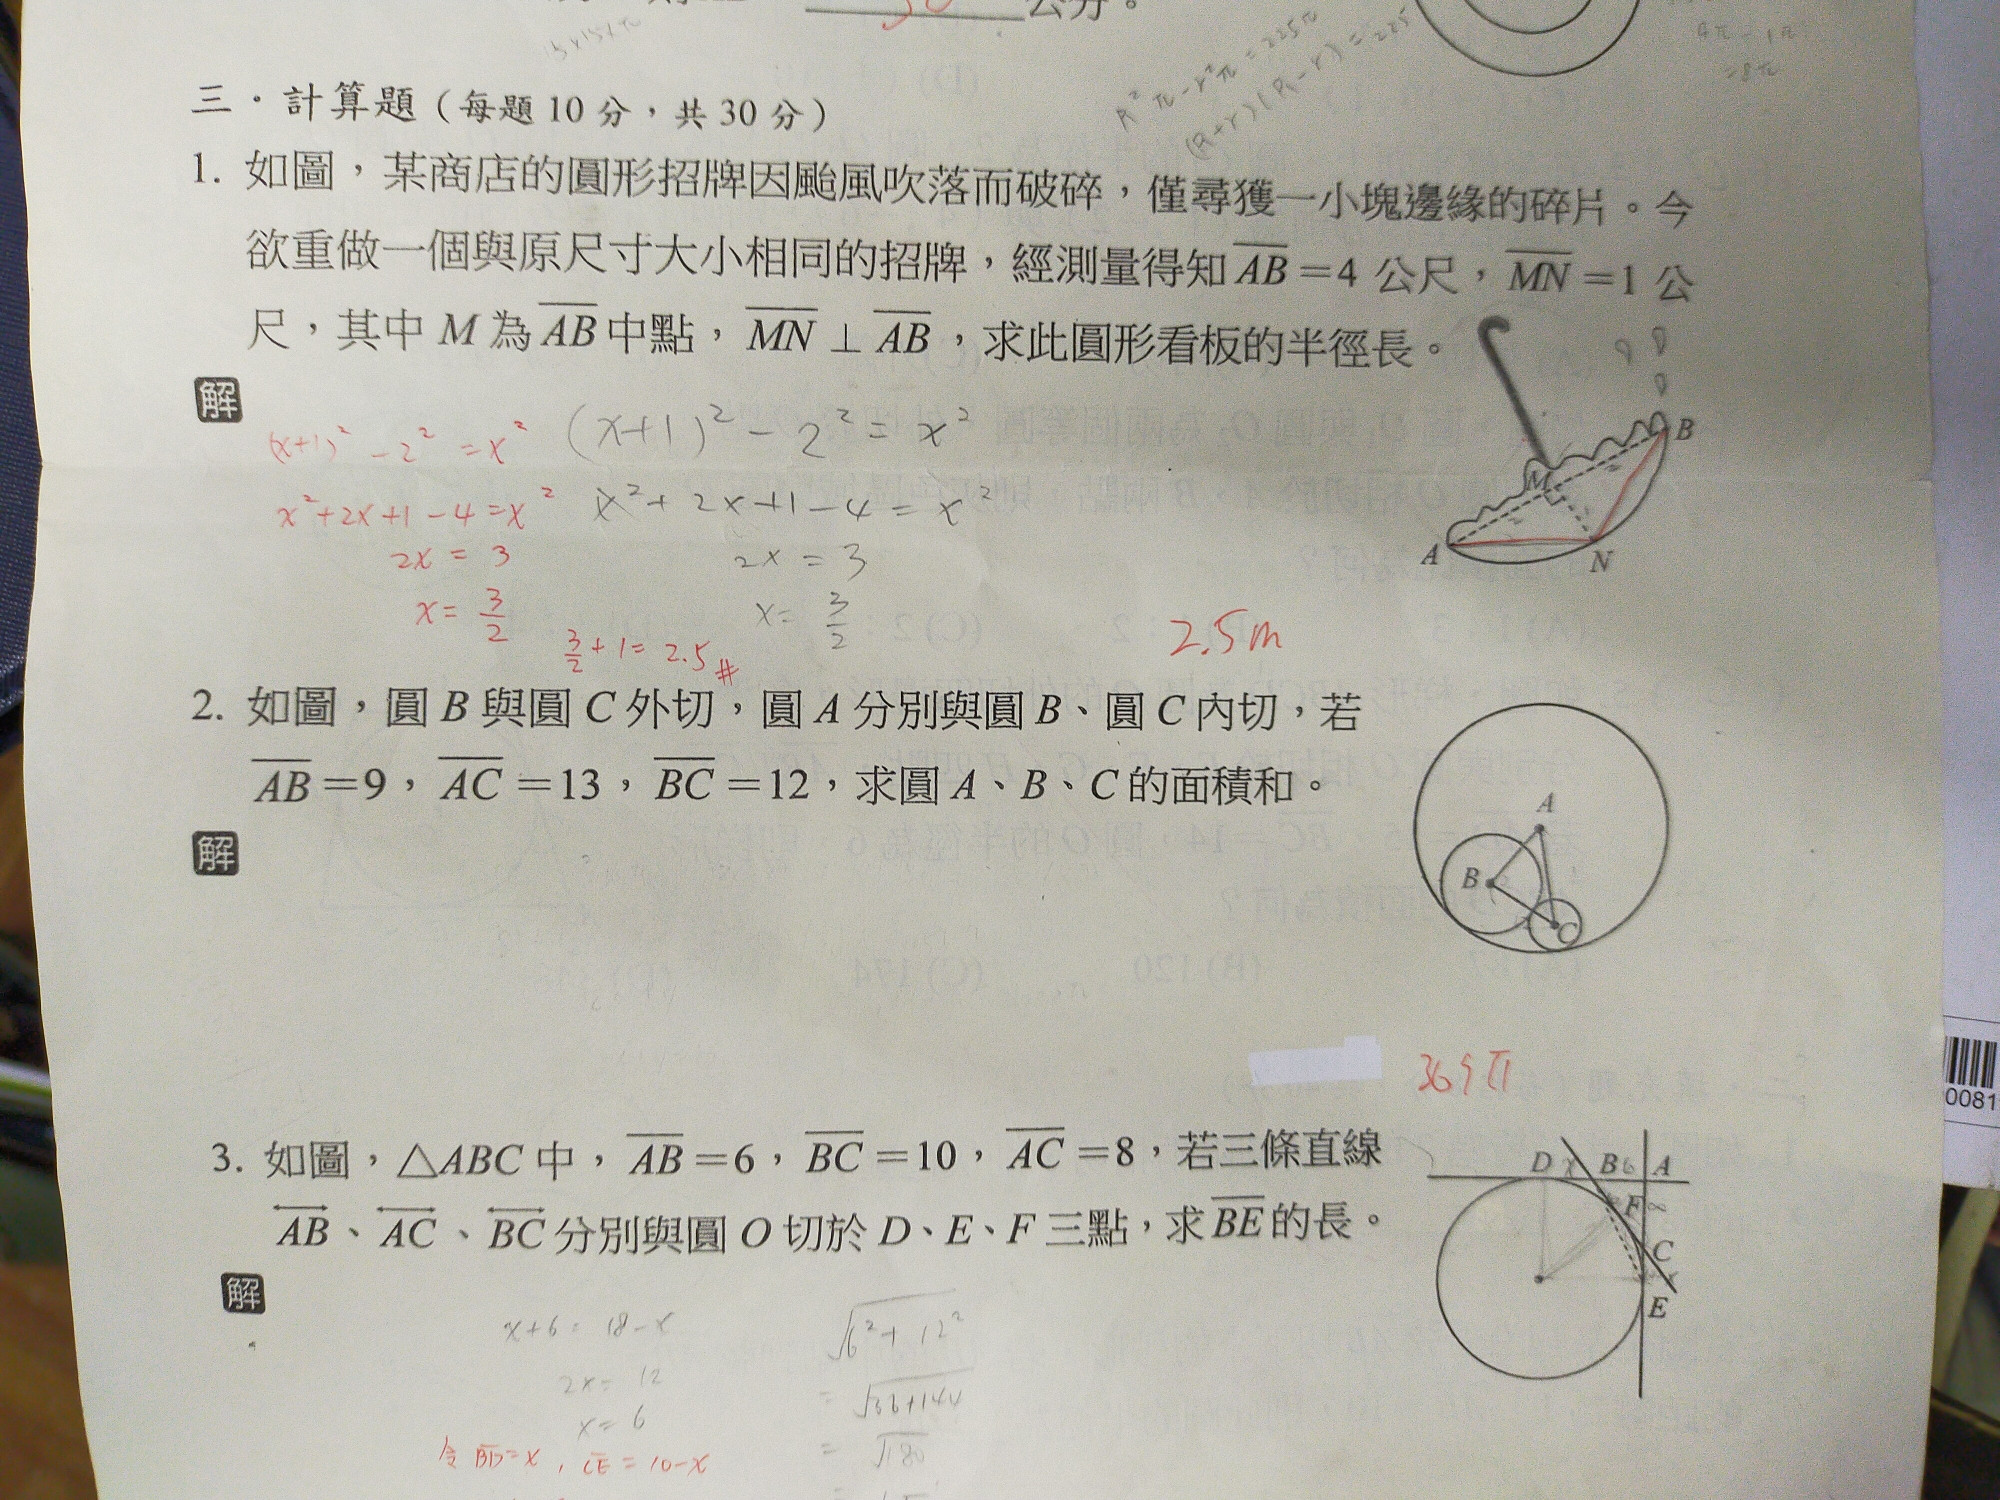 公分。
R²π-r²π=225π
(R+r)(R-r)=225
=8π
三・計算題(每題10分,共30分)
1. 如圖,某商店的圓形招牌因颱風吹落而破碎,僅尋獲一小塊邊緣的碎片。今
欲重做一個與原尺寸大小相同的招牌,經測量得知AB=4公尺,MN=1公
尺,其中M為AB中點,MN⊥AB,求此圓形看板的半徑長。
解
(x+1)²-2²=x² (x+1)²-2²=x²
x²+2x+1-4=x² x²+2x+1-4=x²
2x=3 2x=3
x=3/2 x=3/2
3/2+1=2.5#
2.5m
B
M
A
N
2. 如圖,圓B與圓C外切,圓A分別與圓B、圓C內切,若
AB=9,AC=13,BC=12,求圓A、B、C的面積和。
解
A
B
C
369π
3. 如圖,△ABC中,AB=6,BC=10,AC=8,若三條直線
AB、AC、BC分別與圓O切於D、E、F三點,求BE的長。
解
D x B 6 A
F
C
E
x+6=18-x
2x=12
x=6
令BD=x,CE=10-x
√6²+12²
=√36+144
=√180
0081